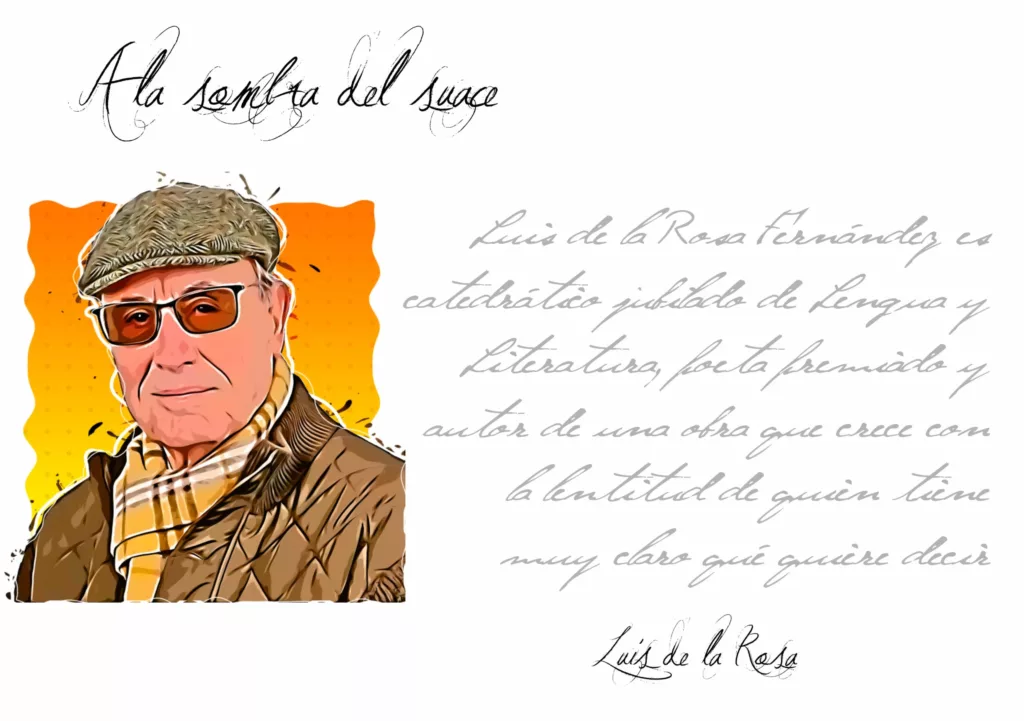 A la sombra del suace
Luis de la Rosa Fernández es
catedrático jubilado de Lengua y
Literatura, poeta premiado y
autor de una obra que crece con
la lentitud de quien tiene
muy claro qué quiere decir
Luis de la Rosa